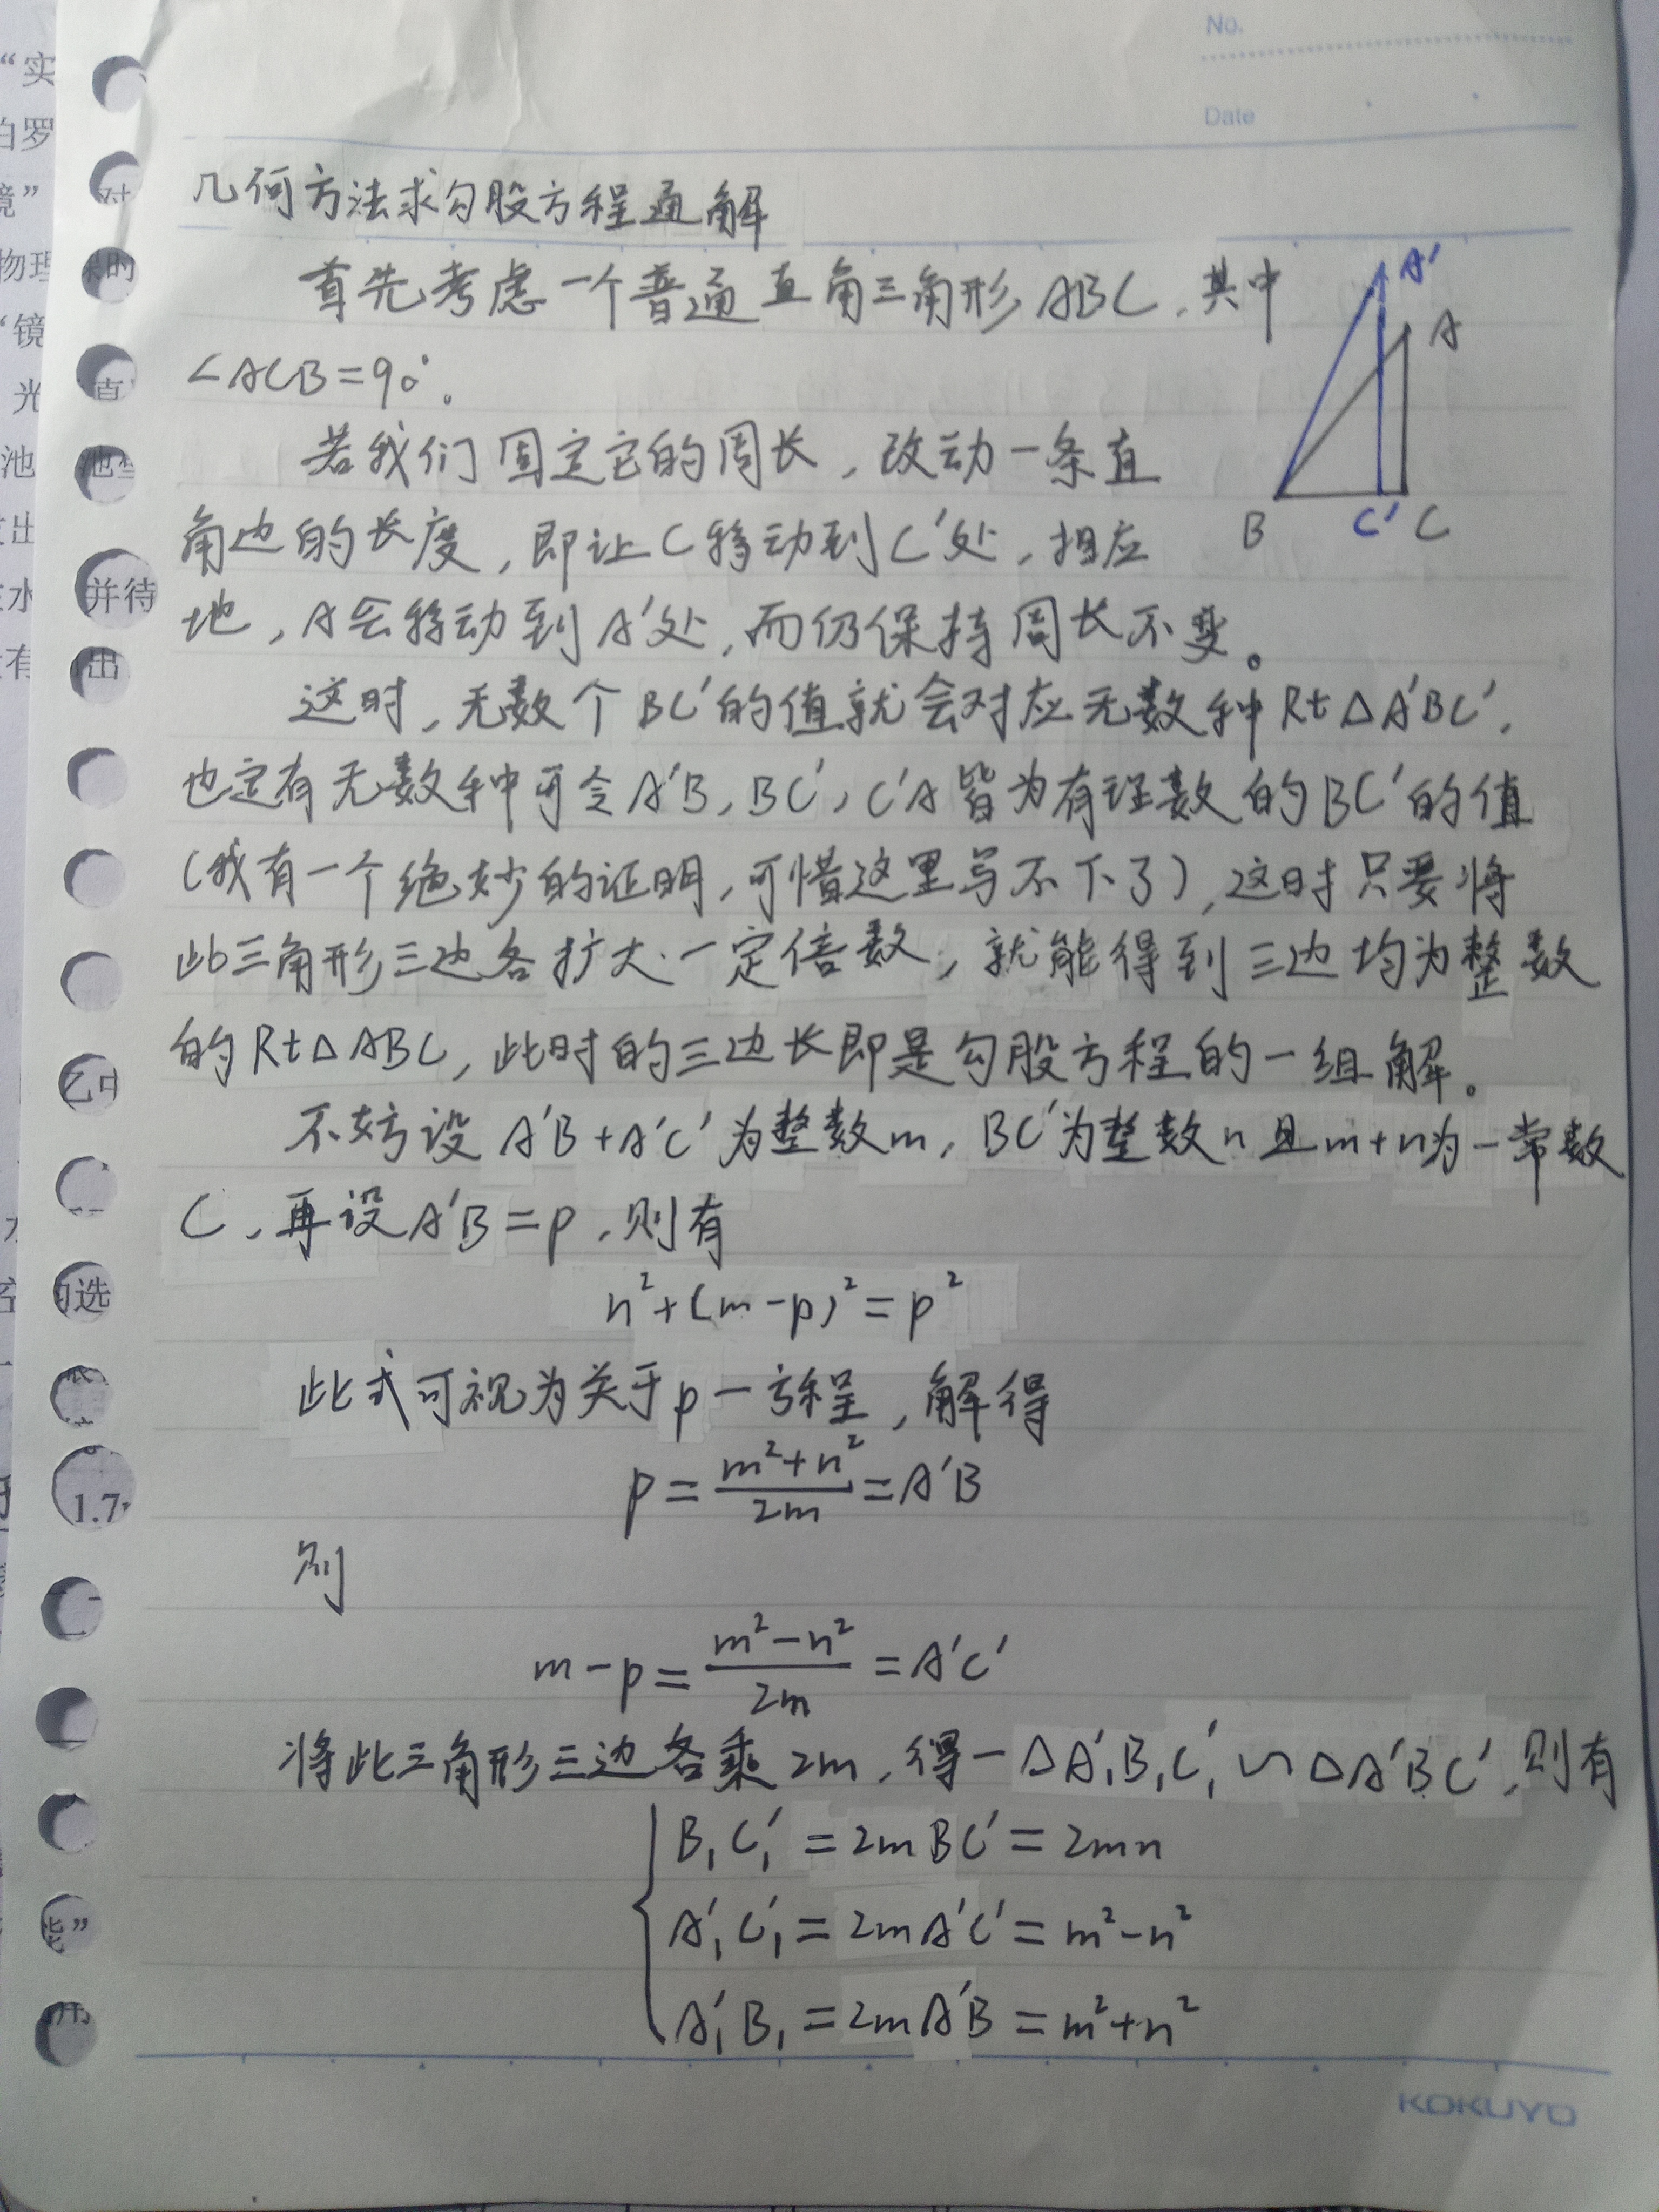 No.
Date
几何方法求勾股方程通解
首先考虑一个普通直角三角形ABC，其中
∠ACB=90°。
若我们固定它的周长，改动一条直
角边的长度，即让C移动到C′处，相应
地，A会移动到A′处，而仍保持周长不变。
这时，无数个BC′的值就会对应无数种Rt△A′BC′，
也定有无数种可令A′B，BC′，C′A皆为有理数的BC′的值
（我有一个绝妙的证明，可惜这里写不下了），这时只要将
此三角形三边各扩大一定倍数，就能得到三边均为整数
的Rt△ABC，此时的三边长即是勾股方程的一组解。
不妨设A′B+A′C′为整数m，BC′为整数n且m+n为一常数
C，再设A′B=p，则有
n²+(m-p)²=p²
此式可视为关于p一方程，解得
p=(m²+n²)/2m=A′B
则
m-p=(m²-n²)/2m=A′C′
将此三角形三边各乘2m，得一△A₁′B₁C₁′∽△A′BC′，则有
B₁C₁′=2mBC′=2mn
A₁′C₁′=2mA′C′=m²-n²
A₁′B₁=2mA′B=m²+n²
A′
A
B
C′
C
KOKUYO
“实
白罗
镜”
物理
“镜
光
池
有
对
直
并待
出
1.7
能”